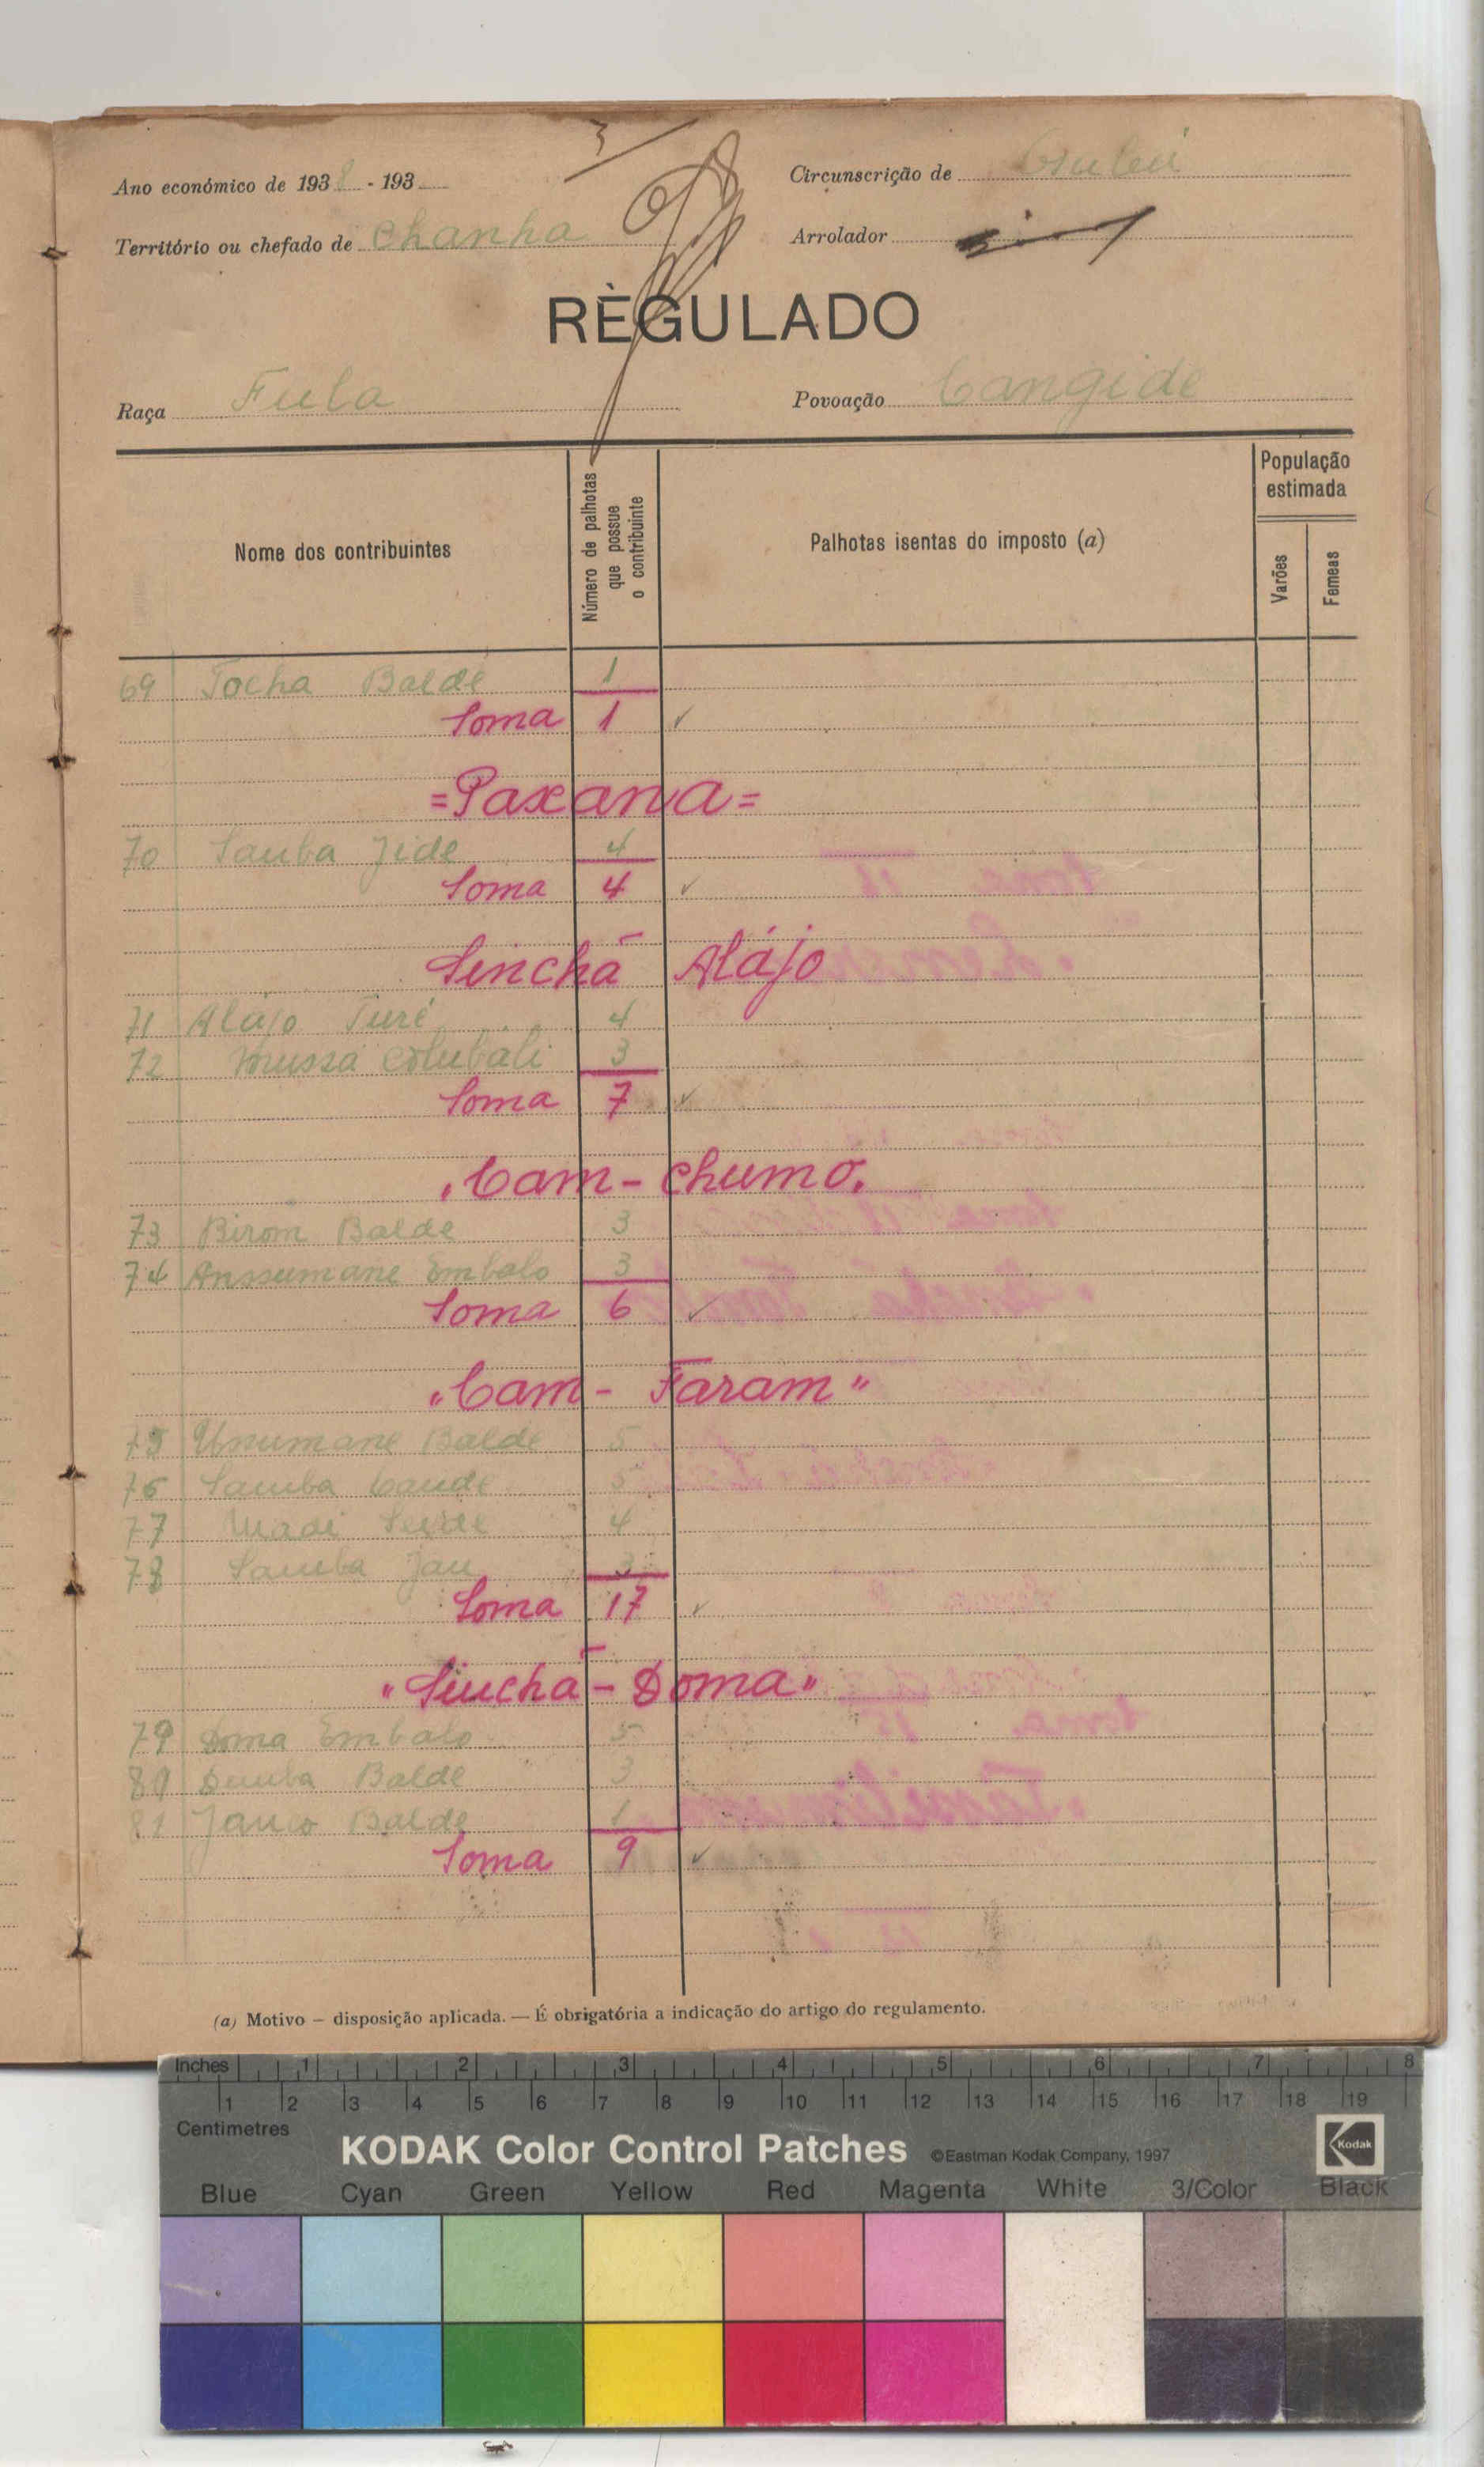 3
Ano económico de 1938 - 193
Circunscrição de
Território ou chefado de Chanha
Arrolador
RÈGULADO
Raça Fula
Povoação Cangide
Nome dos contribuintes
Número de palhotas que possue o contribuinte
Palhotas isentas do imposto (a)
População estimada
Varões
Femeas
69 Tocha Baldé 1
Soma 1 ✓
=Paxana=
70 Samba Jidé 4
Soma 4 ✓
Sinchã Alájo
71 Alájo Turé 4
72 Mussá Colubali 3
Soma 7 ✓
"Cam-Chumo"
73 Birom Balde 3
74 Anssumane Embalo 3
Soma 6 ✓
"Cam - Faram"
75 Unumane Balde 5
76 Samba Cande 5
77 Madi Seide 4
78 Samba Jau 3
Soma 17 ✓
"Sinchã - Doma"
79 Doma Embalo 5
80 Demba Balde 3
81 Janco Balde 1
Soma 9 ✓
(a) Motivo — disposição aplicada. — É obrigatória a indicação do artigo do regulamento.
Inches 1 2 3 4 5 6 7 8
1 2 3 4 5 6 7 8 9 10 11 12 13 14 15 16 17 18 19
Centimetres
KODAK Color Control Patches ©Eastman Kodak Company, 1997 Kodak
Blue Cyan Green Yellow Red Magenta White 3/Color Black